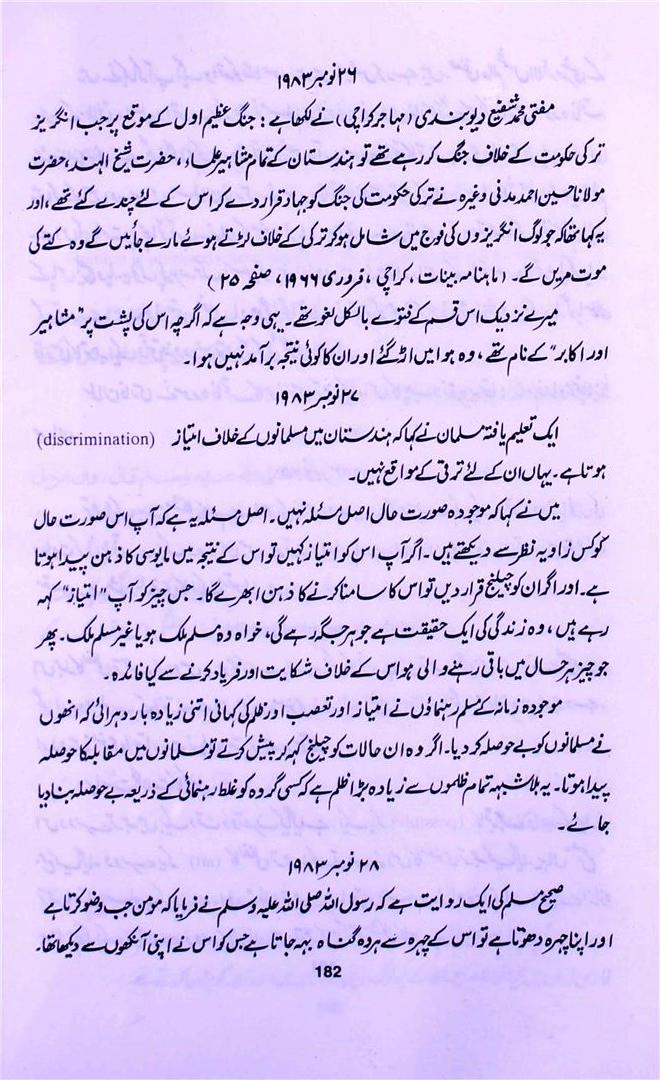 ۲۶ نومبر ۱۹۸۳
مفتی محمد شفیع دیوبندی (مہاجر کراچی) نے لکھا ہے : جنگ عظیم اول کے موقع پر جب انگریز
ترکی حکومت کے خلاف جنگ کر رہے تھے تو ہندستان کے تمام مشاہیر علماء ، حضرت شیخ الہند، حضرت
مولانا حسین احمد مدنی وغیرہ نے ترکی حکومت کی جنگ کو جہاد قرار دے کر اس کے لئے چندے کئے تھے ، اور
یہ کہا تھا کہ جو لوگ انگریزوں کی فوج میں شامل ہو کر ترکی کے خلاف لڑتے ہوئے مارے جائیں گے وہ کتے کی
موت مریں گے۔ (ماہنامہ بینات ، کراچی ، فروری ۱۹۶۶ ، صفحہ ۲۵ )
میرے نزدیک اس قسم کے فتوے بالکل لغو تھے۔ یہی وجہ ہے کہ اگرچہ اس کی پشت پر "مشاہیر
اور اکابر" کے نام تھے ، وہ ہوا میں اڑ گئے اور ان کا کوئی نتیجہ برآمد نہیں ہوا۔
۲۷ نومبر ۱۹۸۳
ایک تعلیم یافتہ مسلمان نے کہا کہ ہندستان میں مسلمانوں کے خلاف امتیاز (discrimination)
ہوتا ہے۔ یہاں ان کے لئے ترقی کے مواقع نہیں۔
میں نے کہا کہ موجودہ صورت حال اصل مسئلہ نہیں۔ اصل مسئلہ یہ ہے کہ آپ اس صورت حال
کو کس زاویۂ نظر سے دیکھتے ہیں۔ اگر آپ اس کو امتیاز کہیں تو اس کے نتیجہ میں مایوسی کا ذہن پیدا ہوتا
ہے۔ اور اگر ان کو چیلنج قرار دیں تو اس کا سامنا کرنے کا ذہن ابھرے گا۔ جس چیز کو آپ "امتیاز" کہہ
رہے ہیں ، وہ زندگی کی ایک حقیقت ہے جو ہر جگہ رہے گی، خواہ وہ مسلم ملک ہو یا غیر مسلم ملک۔ پھر
جو چیز ہر حال میں باقی رہنے والی ہو اس کے خلاف شکایت اور فریاد کرنے سے کیا فائدہ۔
موجودہ زمانہ کے مسلم رہنماؤں نے امتیاز اور تعصب اور ظلم کی کہانی اتنی زیادہ بار دہرائی کہ انھوں
نے مسلمانوں کو بے حوصلہ کر دیا۔ اگر وہ ان حالات کو چیلنج کہہ کر پیش کرتے تو مسلمانوں میں مقابلہ کا حوصلہ
پیدا ہوتا۔ یہ بلاشبہہ تمام ظلموں سے زیادہ بڑا ظلم ہے کہ کسی گروہ کو غلط رہنمائی کے ذریعہ بے حوصلہ بنا دیا
جائے۔
۲۸ نومبر ۱۹۸۳
صحیح مسلم کی ایک روایت ہے کہ رسول اللہ صلی اللہ علیہ وسلم نے فرمایا کہ مومن جب وضو کرتا ہے
اور اپنا چہرہ دھوتا ہے تو اس کے چہرہ سے ہر وہ گناہ بہہ جاتا ہے جس کو اس نے اپنی آنکھوں سے دیکھا تھا۔
182